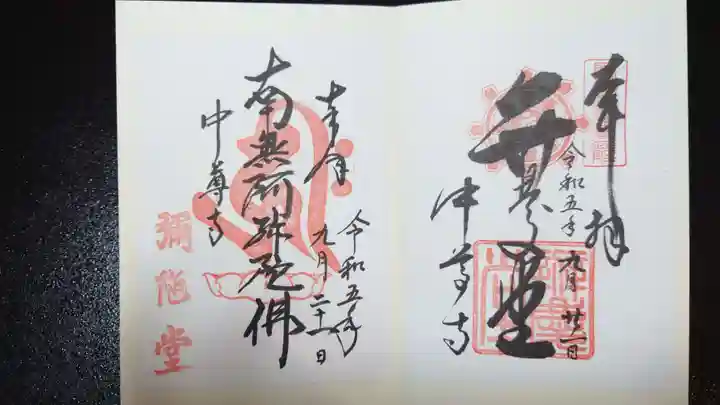 奉拝
令和五年 九月 廿一日
弁慶堂
中尊寺
奉拝
令和五年
九月二十一日
南無阿弥陀佛
中尊寺
彌陀堂